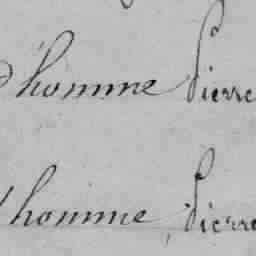 D'homme Pierre
D'homme Pierre